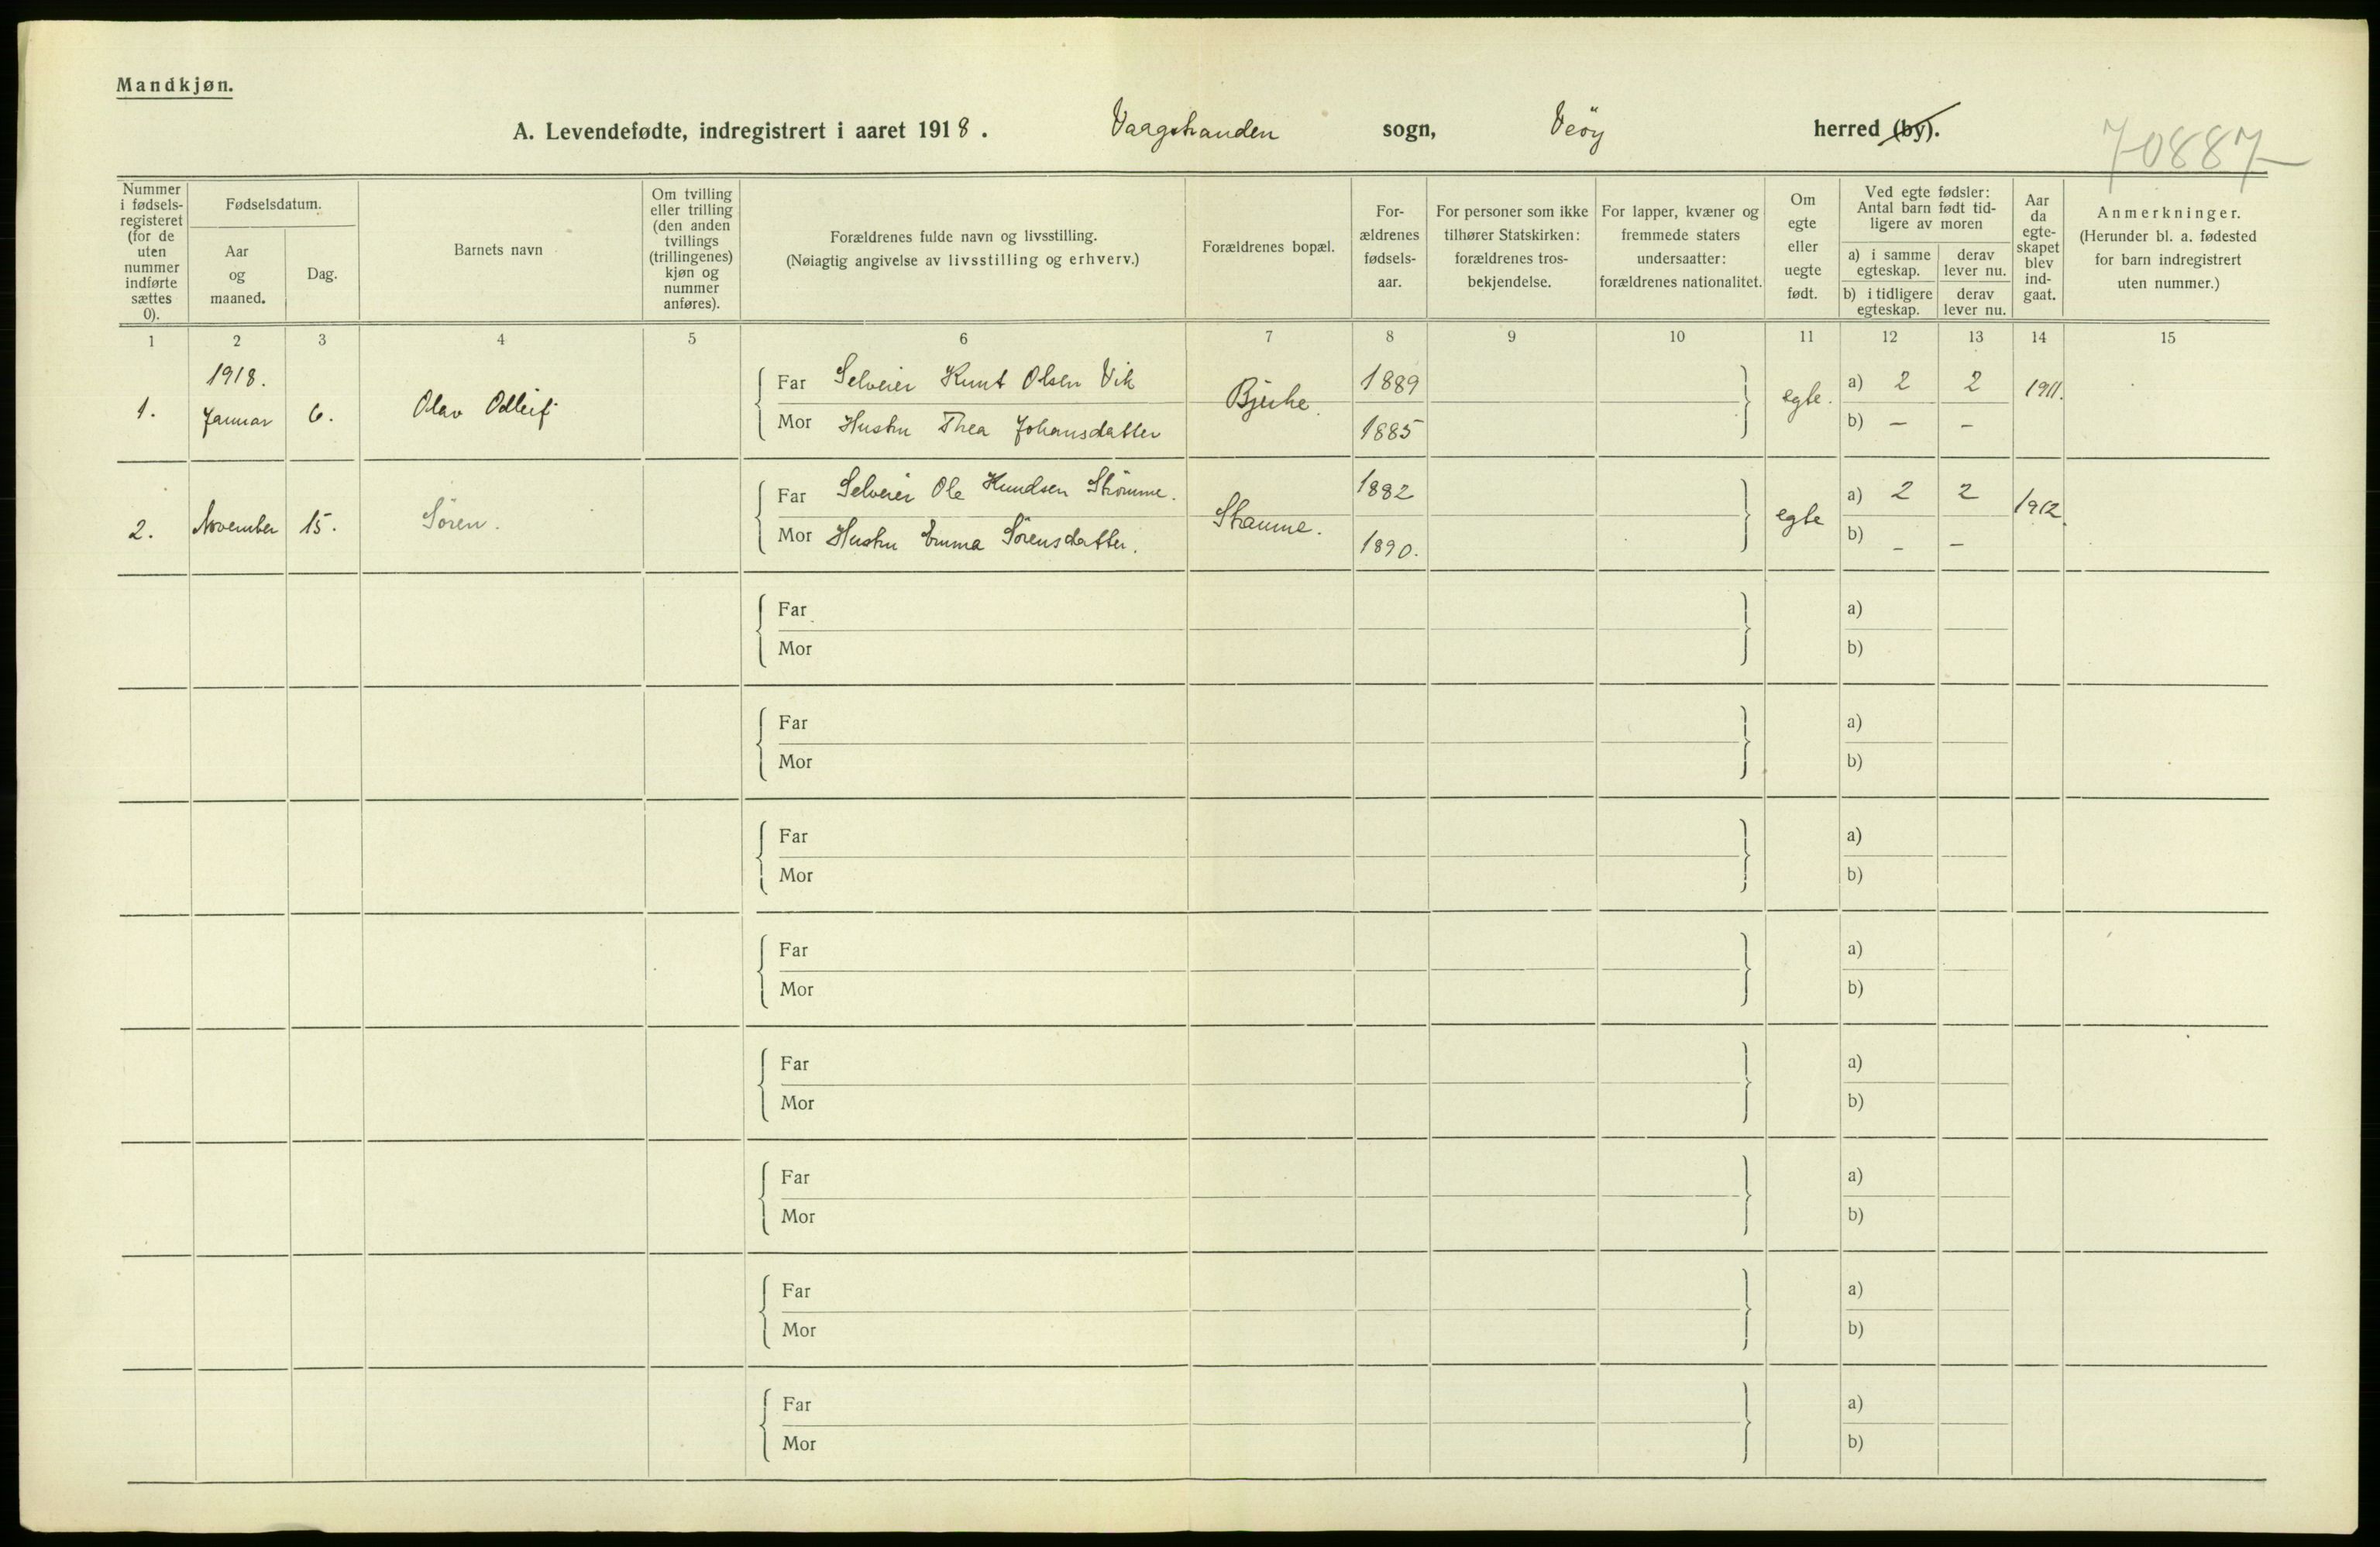 Mandkjøn.
A. Levendefødte, indregistrert i aaret 1918. Vaagstranden sogn, Veöy herred (by).
70887
Nummer i fødselsregisteret (for de uten nummer indførte sættes 0).
Fødselsdatum.
Aar og maaned.
Dag.
Barnets navn
Om tvilling eller trilling (den anden tvillings (trillingenes) kjøn og nummer anføres).
Forældrenes fulde navn og livsstilling.
(Nøiagtig angivelse av livsstilling og erhverv.)
Forældrenes bopæl.
Forældrenes fødselsaar.
For personer som ikke tilhører Statskirken: forældrenes trosbekjendelse.
For lapper, kvæner og fremmede staters undersaatter: forældrenes nationalitet.
Om egte eller uegte født.
Ved egte fødsler: Antal barn født tidligere av moren
a) i samme egteskap.
derav lever nu.
b) i tidligere egteskap.
derav lever nu.
Aar da egteskapet blev indgaat.
Anmerkninger.
(Herunder bl. a. fødested for barn indregistrert uten nummer.)
1 2 3 4 5 6 7 8 9 10 11 12 13 14 15
1918.
1. Januar 6. Olav Odleif
Far Selveier Knut Olsen Vik 1889
Mor Hustru Thea Johansdatter 1885
egte. a) 2 2 1911.
b) – –
2. November 15. Sören.
Far Selveier Ole Knudsen 1882
Mor Hustru Emma Sörensdatter. 1890.
egte a) 2 2 1912.
b) – –
Far a)
Mor b)
Far a)
Mor b)
Far a)
Mor b)
Far a)
Mor b)
Far a)
Mor b)
Far a)
Mor b)
Far a)
Mor b)
Far a)
Mor b)